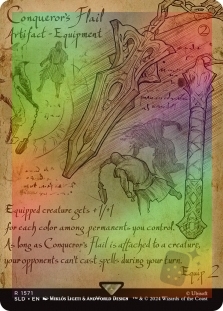 Conqueror's Flail
2
Artifact - Equipment
Equipped creature gets +1/+1
for each color among permanents you control.
As long as Conqueror's Flail is attached to a creature,
your opponents can't cast spells during your turn.
Equip 2
R 1571
SLD • EN MIKLÓS LIGETI & ANDWORLD DESIGN
© Ubisoft
™ & © 2024 Wizards of the Coast